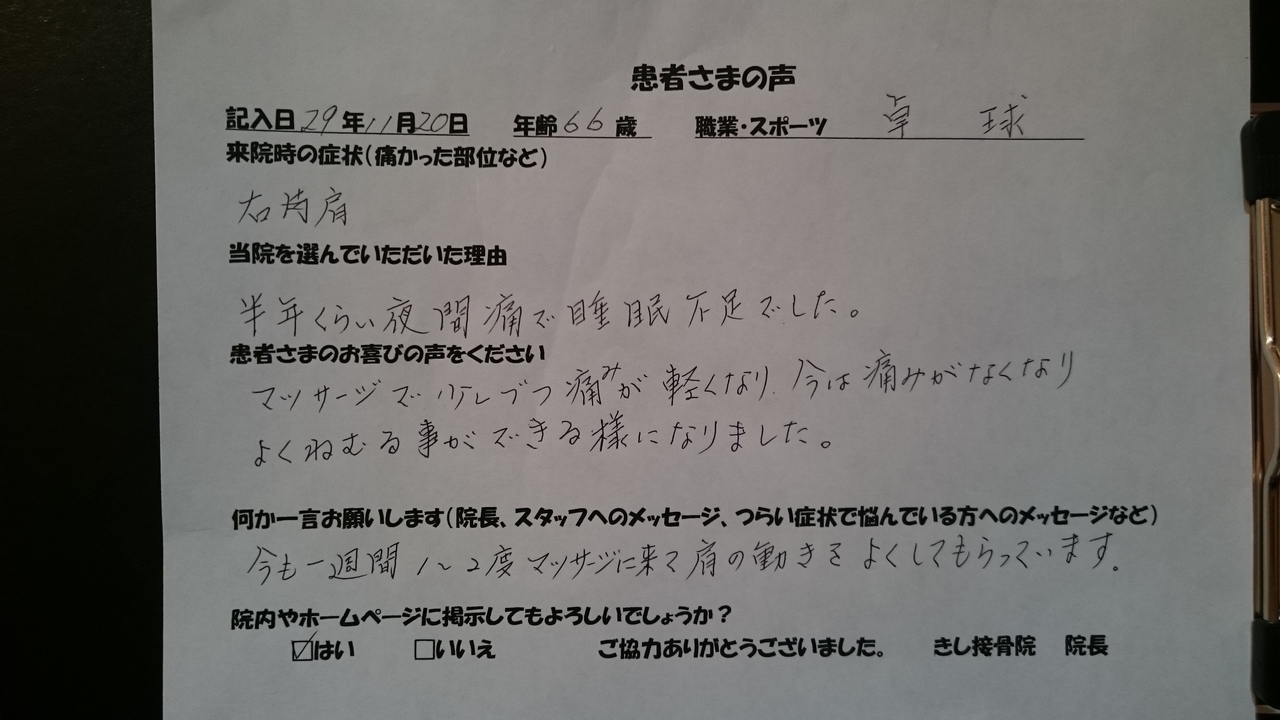 患者さまの声
記入日29年11月20日 年齢66歳 職業・スポーツ 卓 球
来院時の症状(痛かった部位など)
右肩
当院を選んでいただいた理由
半年くらい夜間痛で睡眠不足でした。
患者さまのお喜びの声をください
マッサージで少しづつ痛みが軽くなり、今は痛みがなくなり
よくねむる事ができる様になりました。
何か一言お願いします(院長、スタッフへのメッセージ、つらい症状で悩んでいる方へのメッセージなど)
今も一週間1〜2度マッサージに来て肩の動きをよくしてもらっています。
院内やホームページに掲示してもよろしいでしょうか?
☑はい □いいえ ご協力ありがとうございました。 きし接骨院 院長